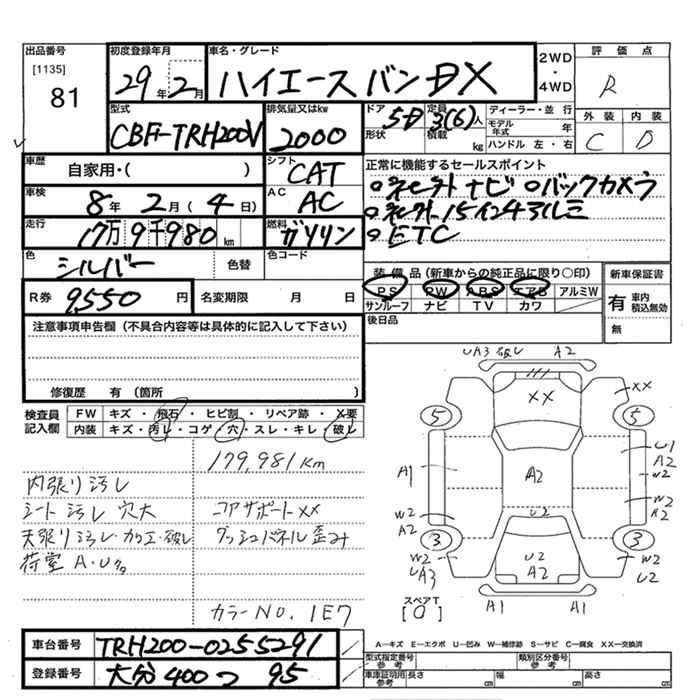 出品番号
[1135]
81
初度登録年月
29年2月
車名・グレード
ハイエースバンDX
2WD・4WD
評価点
R
型式
CBF-TRH200V
排気量又はkw
2000
ドア
5D
定員
3(6)人
形状
積載
kg
ディーラー・並行
モデル年式
年
ハンドル 左・右
外装
内装
C
D
車歴
自家用・( )
シフト
CAT
車検
8年 2月(4日)
AC
AC
走行
17万9千980km
燃料
ガソリン
正常に機能するセールスポイント
○社外ナビ ○バックカメラ
○社外15インチアルミ
○ETC
色
シルバー
色替
色コード
R券
9,550円
名変期限 月 日
装備品(新車からの純正品に限り○印)
PS PW ABS エアB アルミW
サンルーフ ナビ TV カワ
後日品
新車保証書
有 車内積込無効
無
注意事項申告欄(不具合内容等は具体的に記入して下さい)
修復歴 有(箇所 )
検査員記入欄
FW
キズ・飛石・ヒビ割・リペア跡・X要
内装
キズ・汚レ・コゲ・穴・スレ・キレ・破レ
179,981km
内張り汚レ
シート汚レ穴大
天張り汚レ・加工・破レ
荷室A・U多
コアサポートXX
ダッシュパネル歪み
カラーNO. 1E7
UA3 破レ A2
XX
XX
5
5
A1
A2
U1
A2
W2
W2
A2
W2
A2
U2
3
3
W2
UA3
U2
A2
W2
U2
スペアT
[0]
A1
A1
車台番号
TRH200-0255291
登録番号
大分400つ 95
A―キズ E―エクボ U―凹み W―補修跡 S―サビ C―腐食 XX―交換済
型式指定番号
参考
類別区分番号
参考
車庫証明用
参考
長さ
cm
幅
cm
高さ
cm